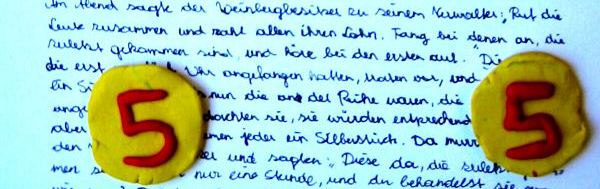 Am Abend sagte der Weinbergbesitzer zu seinem Verwalter: Ruf die
Leute zusammen und zahl allen ihren Lohn. Fang bei denen an, die
zuletzt gekommen sind, und höre bei den ersten auf. "Die
die erst Uhr angefangen hatten, traten vor, und
ein Si nun die an der Reihe waren, die
ang dachten sie, sie würden entsprechend
aber men jeder ein Silberstück. Da murr
den er und sagten: Diese da, die zuletzt
men s nur eine Stunde, und du behandelst sie
5
5